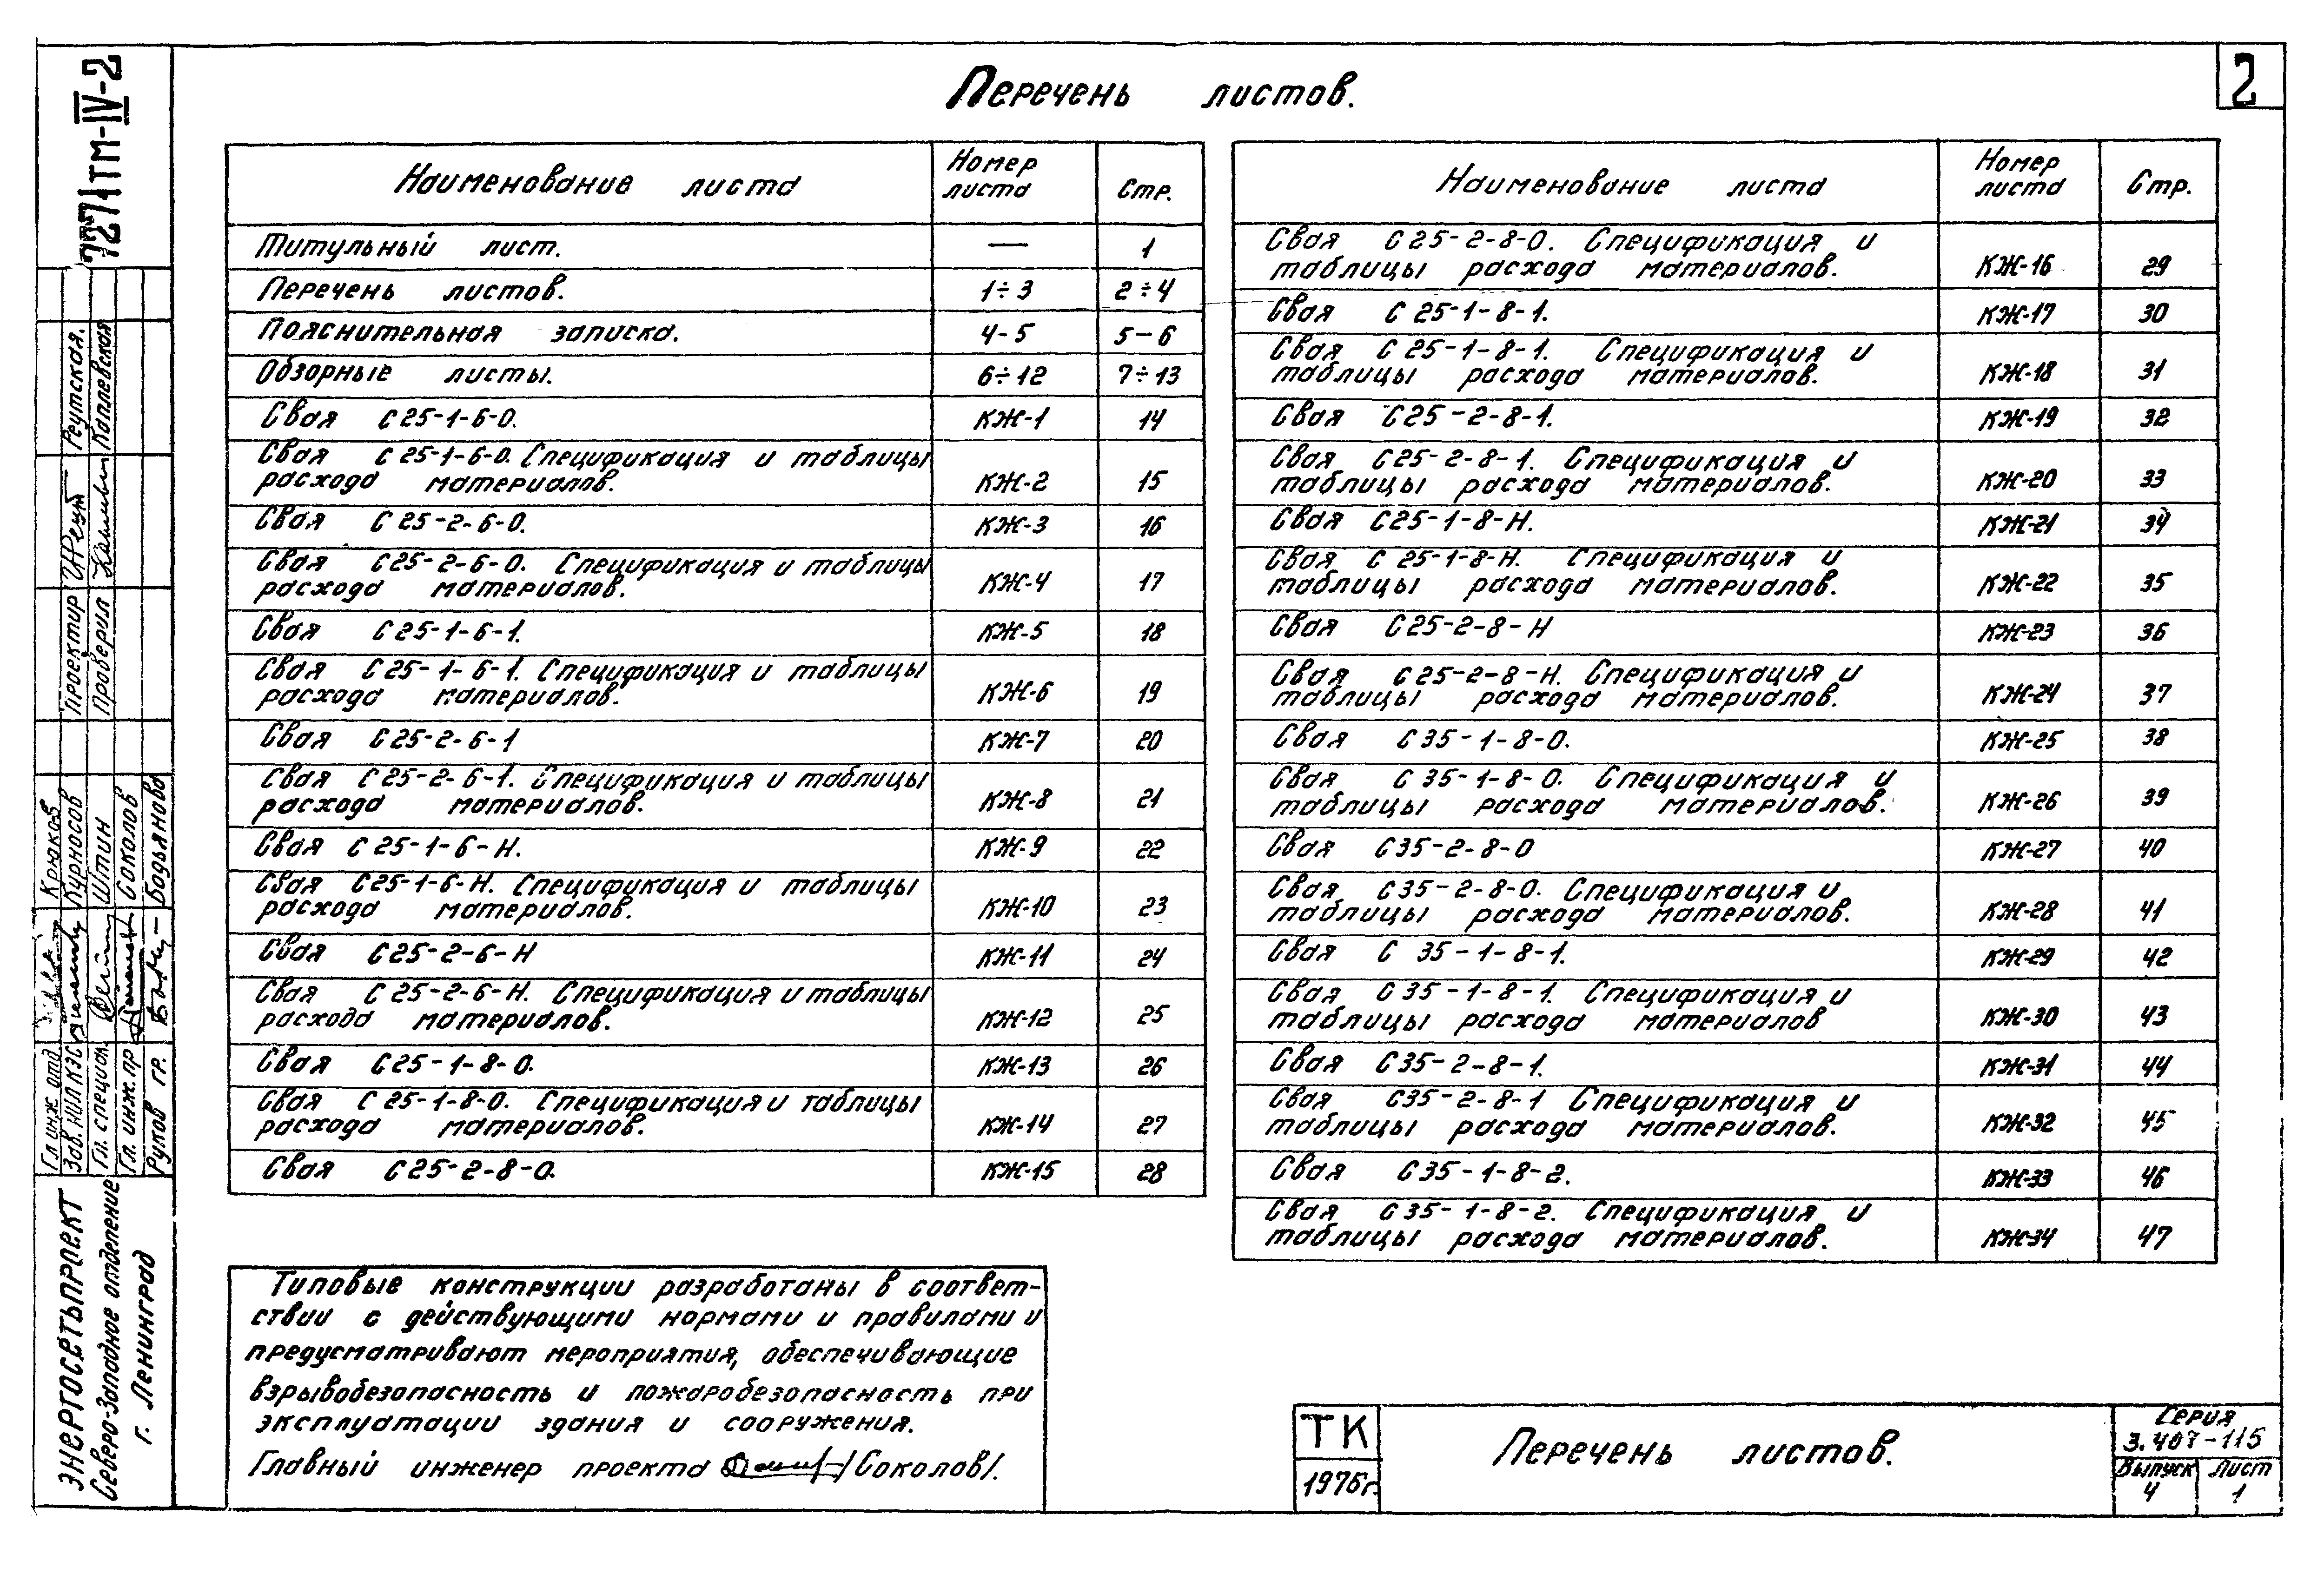 2
Перечень листов.
Наименование листа Номер листа Стр.
Титульный лист. — 1
Перечень листов. 1÷3 2÷4
Пояснительная записка. 4-5 5-6
Обзорные листы. 6÷12 7÷13
Свая С25-1-6-0. КЖ-1 14
Свая С25-1-6-0. Спецификация и таблицы
расхода материалов. КЖ-2 15
Свая С25-2-6-0. КЖ-3 16
Свая С25-2-6-0. Спецификация и таблицы
расхода материалов. КЖ-4 17
Свая С25-1-6-1. КЖ-5 18
Свая С25-1-6-1. Спецификация и таблицы
расхода материалов. КЖ-6 19
Свая С25-2-6-1 КЖ-7 20
Свая С25-2-6-1. Спецификация и таблицы
расхода материалов. КЖ-8 21
Свая С25-1-6-Н. КЖ-9 22
Свая С25-1-6-Н. Спецификация и таблицы
расхода материалов. КЖ-10 23
Свая С25-2-6-Н КЖ-11 24
Свая С25-2-6-Н. Спецификация и таблицы
расхода материалов. КЖ-12 25
Свая С25-1-8-0. КЖ-13 26
Свая С25-1-8-0. Спецификация и таблицы
расхода материалов. КЖ-14 27
Свая С25-2-8-0. КЖ-15 28
Наименование листа Номер листа Стр.
Свая С25-2-8-0. Спецификация и
таблицы расхода материалов. КЖ-16 29
Свая С25-1-8-1. КЖ-17 30
Свая С25-1-8-1. Спецификация и
таблицы расхода материалов. КЖ-18 31
Свая С25-2-8-1. КЖ-19 32
Свая С25-2-8-1. Спецификация и
таблицы расхода материалов. КЖ-20 33
Свая С25-1-8-Н. КЖ-21 34
Свая С25-1-8-Н. Спецификация и
таблицы расхода материалов. КЖ-22 35
Свая С25-2-8-Н КЖ-23 36
Свая С25-2-8-Н. Спецификация и
таблицы расхода материалов. КЖ-24 37
Свая С35-1-8-0. КЖ-25 38
Свая С35-1-8-0. Спецификация и
таблицы расхода материалов. КЖ-26 39
Свая С35-2-8-0 КЖ-27 40
Свая С35-2-8-0. Спецификация и
таблицы расхода материалов. КЖ-28 41
Свая С35-1-8-1. КЖ-29 42
Свая С35-1-8-1. Спецификация и
таблицы расхода материалов КЖ-30 43
Свая С35-2-8-1. КЖ-31 44
Свая С35-2-8-1 Спецификация и
таблицы расхода материалов. КЖ-32 45
Свая С35-1-8-2. КЖ-33 46
Свая С35-1-8-2. Спецификация и
таблицы расхода материалов. КЖ-34 47
Типовые конструкции разработаны в соответ-
ствии с действующими нормами и правилами и
предусматривают мероприятия, обеспечивающие
взрывобезопасность и пожаробезопасность при
эксплуатации здания и сооружения.
Главный инженер проекта /Соколов/.
ТК
1976г.
Перечень листов.
Серия
3.407-115
Выпуск Лист
4 1
7271тм-IV-2
Проектир Реутская.
Проверил Каплевская
Гл инж отд Крюков
Зав. НИЛКЭС Курносов
Гл. специал. Штин
Гл. инж. пр Соколов
Руков гр. Бодьянова
ЭНЕРГОСЕТЬПРОЕКТ
Северо-Западное отделение
г. Ленинград